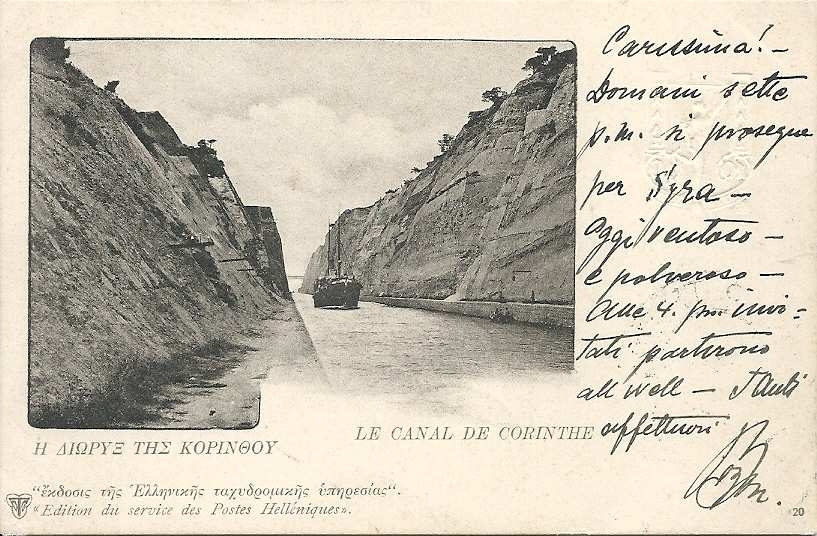 Carissima! -
Domani sette
p.m. si prosegue
per Syra -
Oggi ventoso -
e polveroso -
Alle 4. pm. invi-
tati partirono
all well - Tanti
affettuosi
Η ΔΙΩΡΥΞ ΤΗΣ ΚΟΡΙΝΘΟΥ
LE CANAL DE CORINTHE
“ἔκδοσις τῆς Ἑλληνικῆς ταχυδρομικῆς ὑπηρεσίας“.
«Edition du service des Postes Helléniques».
20